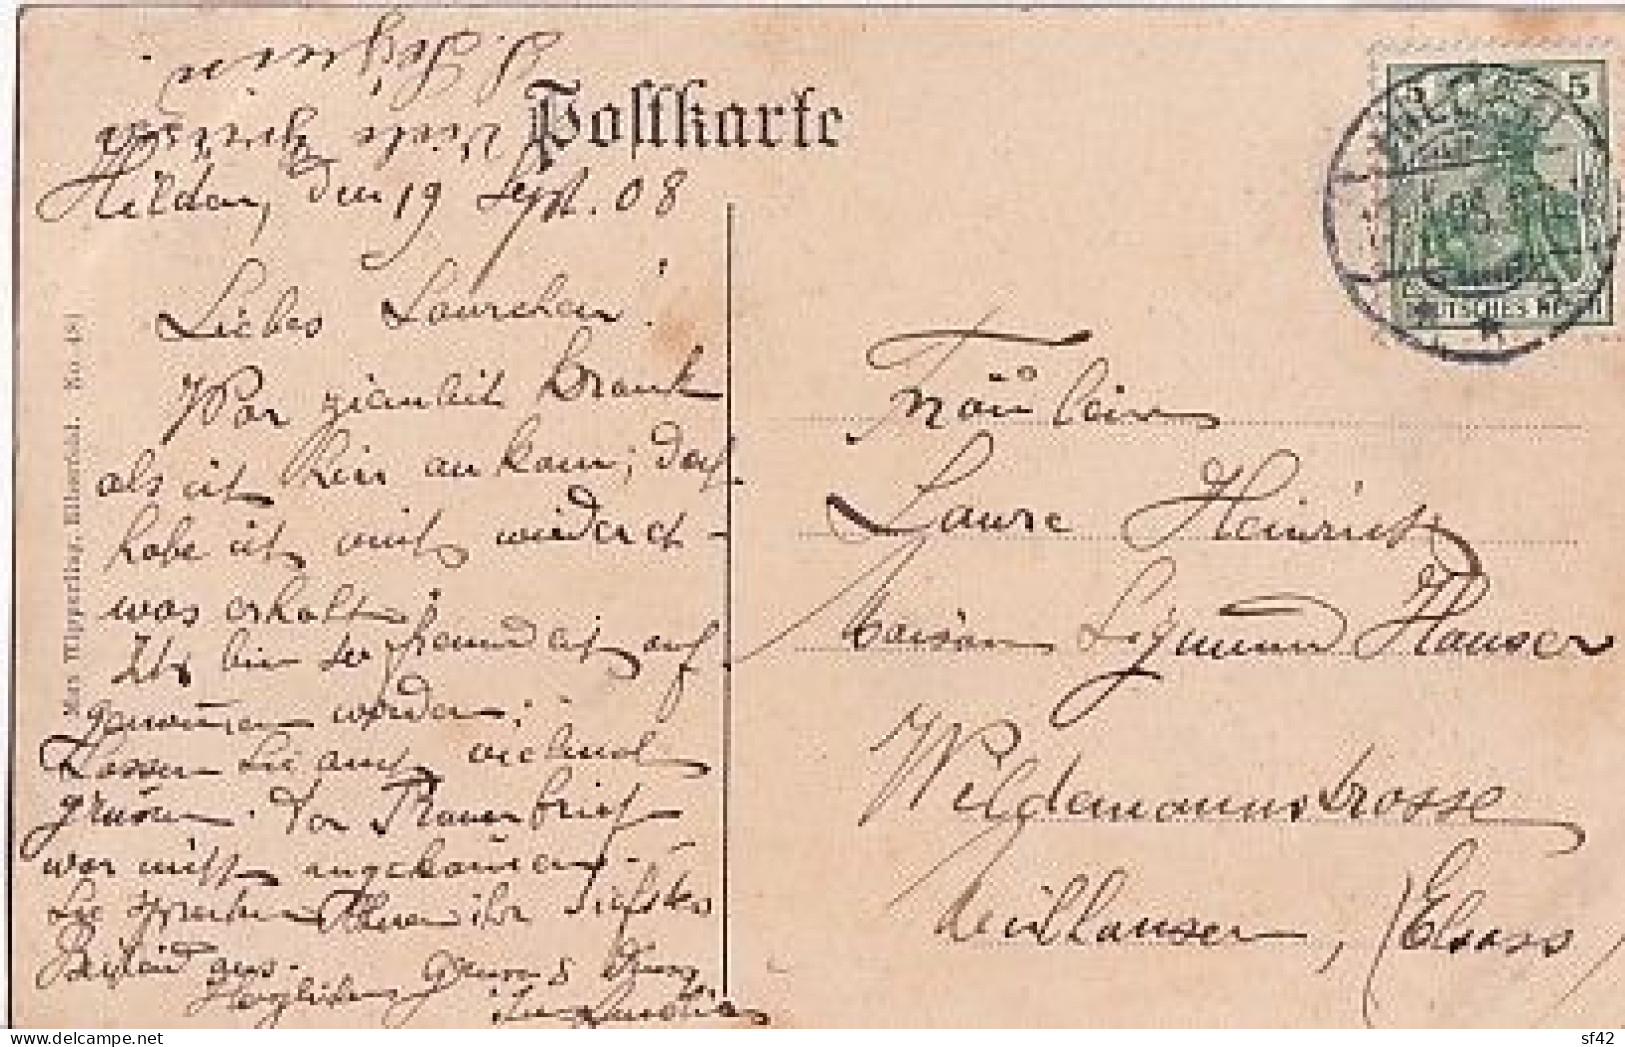 Postkarte
Hilden, den 19 Sept. 08
Liebes Laurchen!
War ziemlich krank
als ich hier ankam; doch
habe ich mich wieder et-
was erholt.
Ich bin so freundlich auf
genommen worden.
Lassen Sie auch vielmals
grüssen. Der Trauerbrief
war nicht angekommen.
Sie sprechen Ihnen ihr tiefstes
Beileid aus.
Herzlichen Gruss & Kuss
Max Wipperling, Elberfeld. No. 481
5
DEUTSCHES REICH
Fräulein
Laure Heinrich
Maison Sigmund Hauser
Wildemannstrasse
Mülhausen, (Elsass)
delcampe.net
sf42